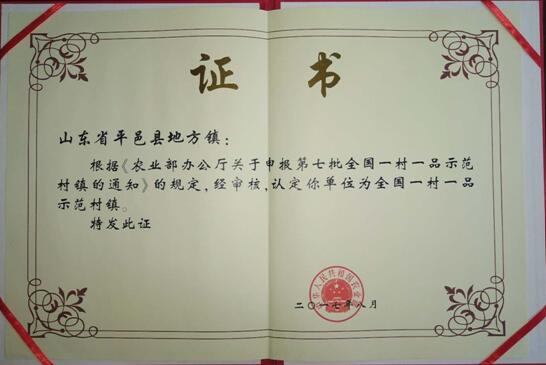 证书
山东省平邑县地方镇：
根据《农业部办公厅关于申报第七批全国一村一品示范
村镇的通知》的规定，经审核，认定你单位为全国一村一品
示范村镇。
特发此证
中华人民共和国农业部
二〇一七年八月